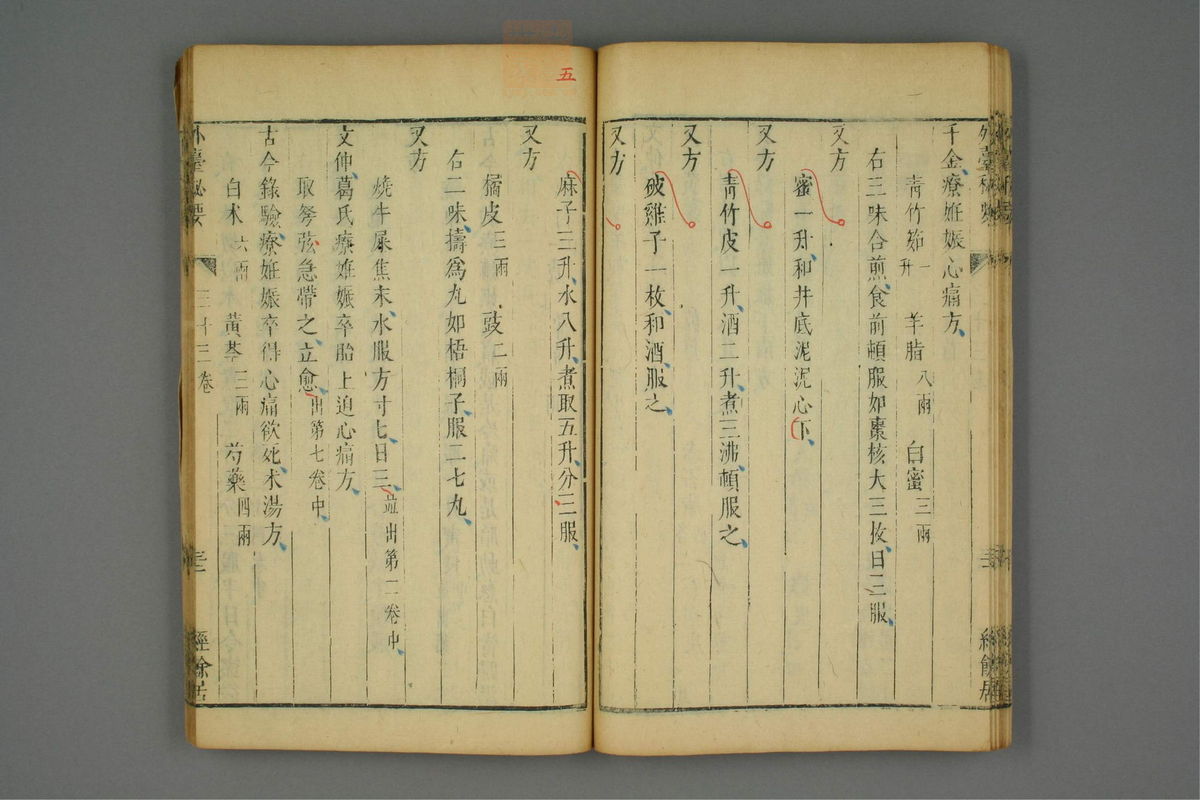 千金療妊娠心痛方
青竹筎一升 羊脂八兩 白蜜三兩
右三味合煎食前頓服如棗核大三枚日三服
又方
蜜一升和井底泥泥心下
又方
青竹皮一升酒二升煮三沸頓服之
又方
破雞子一枚和酒服之
又方
五
麻子三升水八升煮取五升分三服
又方
橘皮三兩 豉二兩
右二味擣為丸如梧桐子服二七丸
又方
燒牛屎焦末水服方寸七日三並出第二卷中
文仲葛氏療妊娠卒胎上迫心痛方
取弩弦急帶之立愈出第七卷中
古今錄驗療妊娠卒得心痛欲死术湯方
白术六兩 黃芩三兩 芍藥四兩
外臺秘要 三十三卷 三二 經餘居